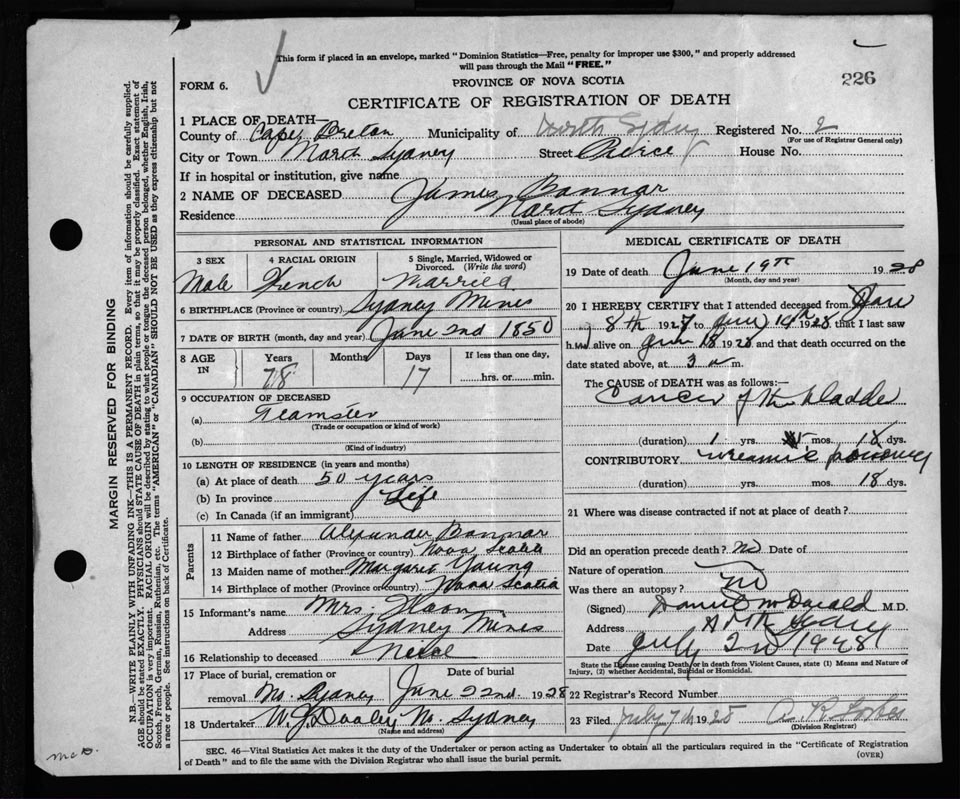 This form if placed in an envelope, marked "Dominion Statistics—Free, penalty for improper use $300," and properly addressed
will pass through the Mail "FREE."
226
FORM 6.
PROVINCE OF NOVA SCOTIA
CERTIFICATE OF REGISTRATION OF DEATH
1 PLACE OF DEATH—
County of Cape Breton Municipality of North Sydney Registered No. 2
(For use of Registrar General only)
City or Town North Sydney Street Peirce House No.
If in hospital or institution, give name
2 NAME OF DECEASED James Bannar
Residence North Sydney
(Usual place of abode)
PERSONAL AND STATISTICAL INFORMATION
3 SEX 4 RACIAL ORIGIN 5 Single, Married, Widowed or Divorced. (Write the word)
Male French Married
6 BIRTHPLACE (Province or country) Sydney Mines
7 DATE OF BIRTH (month, day and year) June 2nd 1850
8 AGE IN Years Months Days If less than one day,
78 17 hrs. or min.
9 OCCUPATION OF DECEASED
(a) Teamster
(Trade or occupation or kind of work)
(b)
(Kind of industry)
10 LENGTH OF RESIDENCE (in years and months)
(a) At place of death 50 years
(b) In province Life
(c) In Canada (if an immigrant)
Parents
11 Name of father Alexander Bannar
12 Birthplace of father (Province or country) Nova Scotia
13 Maiden name of mother Margaret Young
14 Birthplace of mother (Province or country) Nova Scotia
15 Informant's name Mrs.
Address Sydney Mines
16 Relationship to deceased Neice
17 Place of burial, cremation or Date of burial
removal No. Sydney June 22nd 1928
18 Undertaker W. J. Dooley No. Sydney
(Name and address)
MEDICAL CERTIFICATE OF DEATH
19 Date of death June 19th 1928
(Month, day and year)
20 I HEREBY CERTIFY that I attended deceased from
8th 1927 to June 19th 1928 that I last saw
him alive on June 18 1928 and that death occurred on the
date stated above, at 3 a m.
The CAUSE OF DEATH was as follows:—
Cancer of the bladder
(duration) 1 yrs. mos. 18 dys.
CONTRIBUTORY uraemic poisoning
(duration) yrs. mos. 18 dys.
21 Where was disease contracted if not at place of death?
Did an operation precede death? No Date of
Nature of operation
Was there an autopsy? No
(Signed) McDonald M.D.
Address North Sydney
Date July 2nd 1928
State the Disease causing Death, or in death from Violent Causes, state (1) Means and Nature of
Injury, (2) whether Accidental, Suicidal or Homicidal.
22 Registrar's Record Number
23 Filed July 7th 1928 A. R. Forbes
(Division Registrar)
SEC. 46—Vital Statistics Act makes it the duty of the Undertaker or person acting as Undertaker to obtain all the particulars required in the "Certificate of Registration
of Death" and to file the same with the Division Registrar who shall issue the burial permit.
(OVER)
MARGIN RESERVED FOR BINDING
N.B.—WRITE PLAINLY WITH UNFADING INK—THIS IS A PERMANENT RECORD. Every item of information should be carefully supplied.
AGE should be stated EXACTLY. PHYSICIANS should STATE CAUSE OF DEATH in plain terms, so that it may be properly classified. Exact statement of
OCCUPATION is very important. RACIAL ORIGIN will be described by stating to what people or tongue the deceased person belonged, whether English, Irish,
Scotch, French, German, Russian, Ruthenian, etc. The terms "AMERICAN" or "CANADIAN" SHOULD NOT BE USED as they express citizenship but not
a race or people. See instructions on back of Certificate.